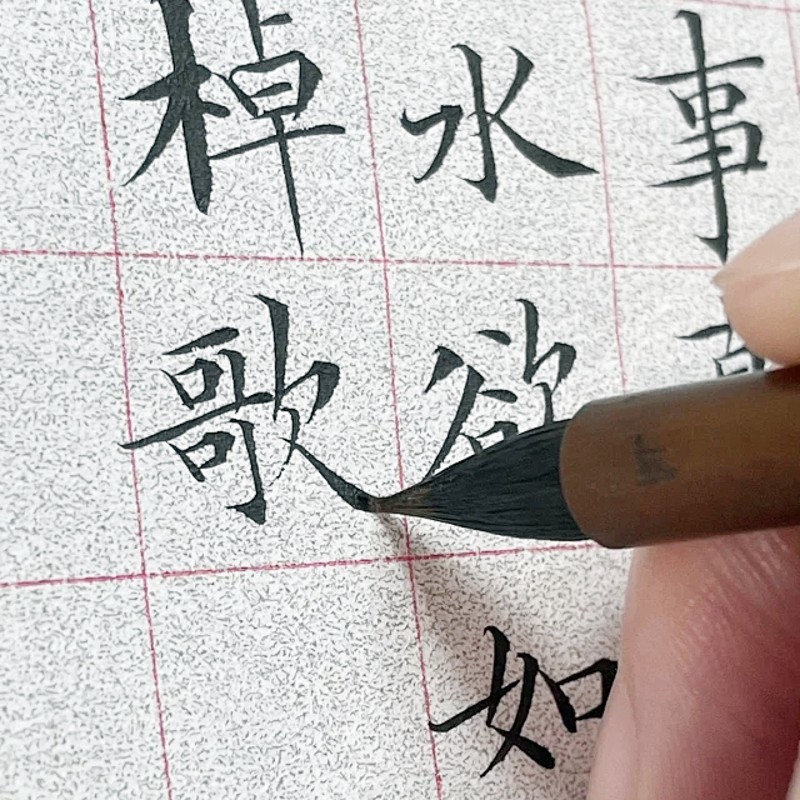 事
水欲如
棹歌